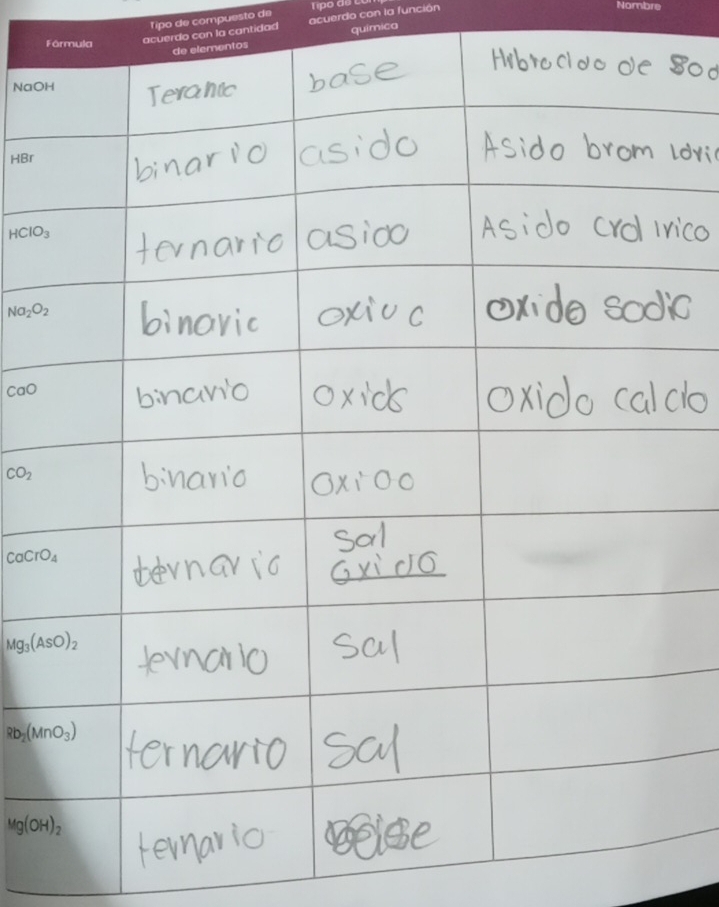 Fórmula
Tipo de compuesto de
acuerdo con la cantidad
de elementos
Tipo de
acuerdo con la función
química
Nombre
NaOH Teranic base Hibrocloo de Sod
HBr binario asido Asido brom idric
HClO₃ ternario asioo Asido crol irico
Na₂O₂ binario oxiuc oxido sodic
CaO binario oxids oxido calcio
CO₂ binario oxioo
CaCrO₄ ternario sal
oxido
Mg₃(AsO)₂ ternario Sal
Rb₂(MnO₃) ternario Sal
Mg(OH)₂ ternario